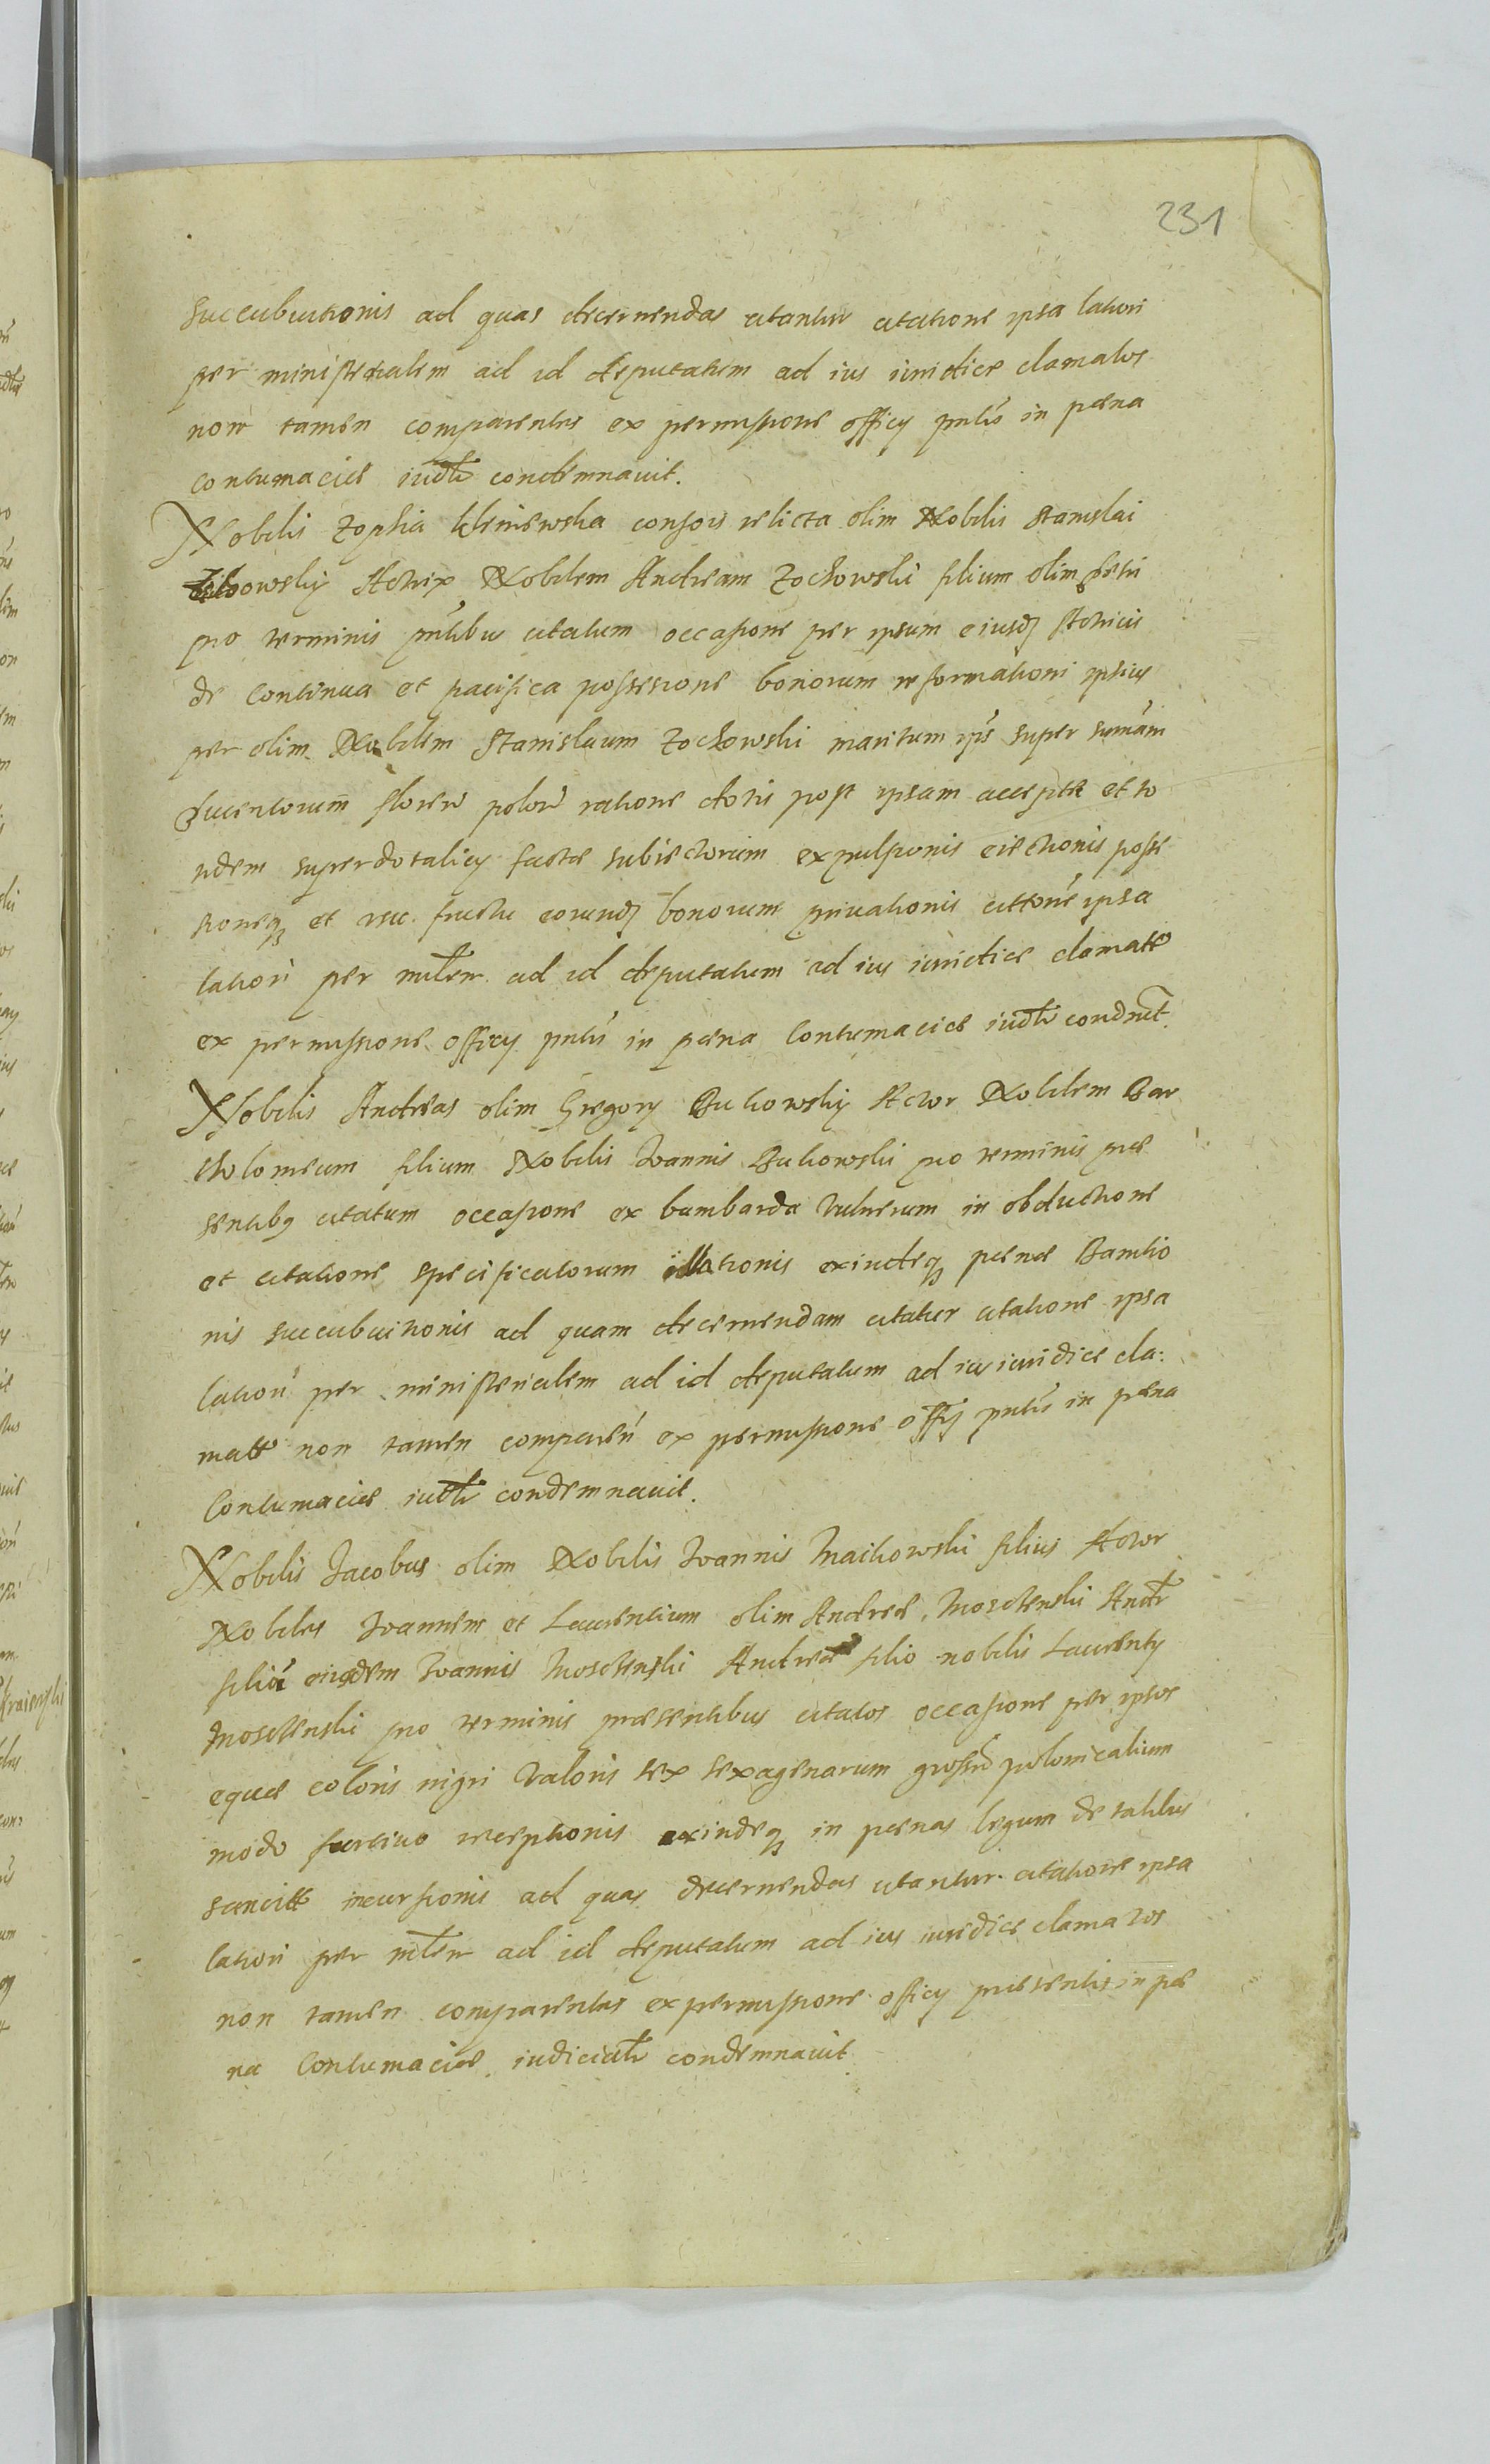 231
succubuitionis ad quas decernendas citantur citatione ipsa latiori
per ministerialem ad id deputatum ad ius iuridice clamatos
non tamen comparentes ex permissione officy pntis in pœna
contumaciæ iudtr condemnauit.
Nobilis Zophia consors relicta olim Nobilis Stanislai
Actrix Nobilem Andream Zochowski filium olim Petri
pro terminis pntibus citatum occasione per ipsum eiusdȝ Actricis
de continua et pacifica possessione bonorum reformationi ipsius
per olim Nobilem Stanislaum Zochowski maritum ipś super sumam
ducentorum floren polon ratione dotis post ipsam acceptæ et to
tidem superdotalicy factæ subiectorum expulsionis eiectionis posse
sioneqȝ et usu fructu eorundȝ bonorum priuationis cittone ipsa
latiori per mtlem ad id deputatum ad ius iuridice clamatũ
ex permissione officy pntis in pœna Contumaciæ iudtr condnt.
Nobilis Andreas olim Gregory Bukowsky Actor Nobilem Bar
tholomeum filium Nobilis Ioannis Bukowski pro terminis præ
sentibȝ citatum occasione ex bombarda vulnerum in obductione
et citatione specificatorum illationis exindeqȝ pœnæ Bannitio
nis succubuitionis ad quam decernendam citatur citatione ipsa
latiori per ministerialem ad id deputatum ad ius iuridice cla:
matũ non tamen comparen ex permissione offy pntis in pœna
Contumaciæ iudtr condemnauit.
Nobilis Iacobus olim Nobilis Ioannis Maikowski filius Actor
Nobiles Ioannem et Laurentium olim Andreæ Moscienski
filiu eiusdem Ioannis Moscienski Andreæ filio nobilis Laurenty
Moscienski pro terminis præsentibus citatos occasione per ipsos
equæ coloris nigri valoris sex sexagenarum grossor polonicalium
modo furtiuo receptionis exindeqȝ in pœnas legum de talibus
sancitt incursionis ad quas decernendas citantur citatione ipsa
latiori per mtlem ad id deputatum ad ius iuridice clamatos
non tamen comparentes ex permissione officy præsentis in pœ
na Contumaciæ iudicialtr condemnauit